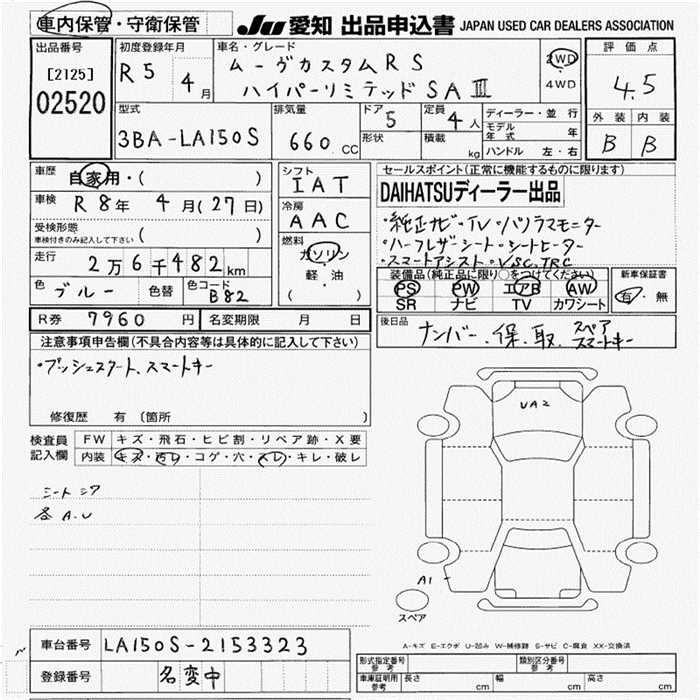 車内保管・守衛保管
JU 愛知 出品申込書 JAPAN USED CAR DEALERS ASSOCIATION
出品番号
[2125]
02520
初度登録年月
R5 4月
車名・グレード
ムーヴカスタムRS
ハイパーリミテッドSAⅢ
2WD
4WD
評価点
4.5
外装 内装
B B
型式
3BA-LA150S
排気量
660 CC
ドア 5
形状
定員 4人
積載 kg
ディーラー・並行
モデル年式 年
ハンドル 左・右
車歴 自家用・( )
車検 R8年 4月(27日)
受検形態
車検付きのみ記入して下さい ( )
走行 2万6千482km
色 ブルー 色替 色コード B82
シフト
IAT
冷房
AAC
燃料
ガソリン
軽・油
( )
セールスポイント(正常に機能するものに限ります)
DAIHATSUディーラー出品
・純正ナビ・TV・パノラマモニター
・ハーフレザーシート・シートヒーター
・スマートアシスト・VSC.TRC
装備品(純正品に限り○をつけてください)
PS PW エアB AW
SR ナビ TV カワシート
新車保証書
有・無
R券 7960円 名変期限 月 日
後日品
ナンバー.保.取.スペアスマートキー
注意事項申告欄(不具合内容等は具体的に記入して下さい)
・プッシュスタート.スマートキー
修復歴 有 〔箇所
検査員記入欄
FW キズ・飛石・ヒビ割・リペア跡・X要
内装 キズ・汚レ・コゲ・穴・スレ・キレ・破レ
シート シワ
各 A.U
UA2
A1
スペア
A-キズ E-エクボ U-凹み W-補修跡 S-サビ C-腐食 XX-交換済
車台番号 LA150S-2153323
登録番号 名変中
形式指定番号 参考
類別区分番号 参考
車庫証明用 参考 長さ cm 幅 cm 高さ cm